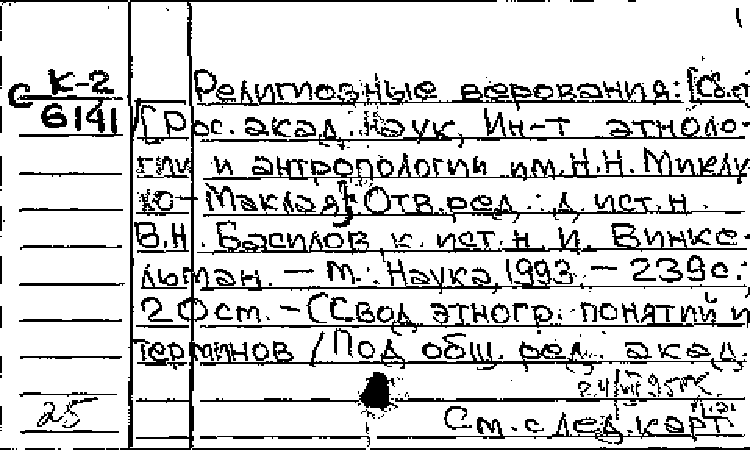 1
С К-2
6141
Религиозные верования: [Сб.
/ Рос. акад. наук, Ин-т этноло-
гии и антропологии им. Н.Н. Миклу
хо-Маклая; Отв. ред.: д. ист. н.
В.Н. Басилов, к. ист. н. И. Винке-
льман. — М.: Наука, 1993. — 239 с.;
20 см. — (Свод этногр. понятий и
терминов / Под общ. ред. акад.
25
См. след. карт.